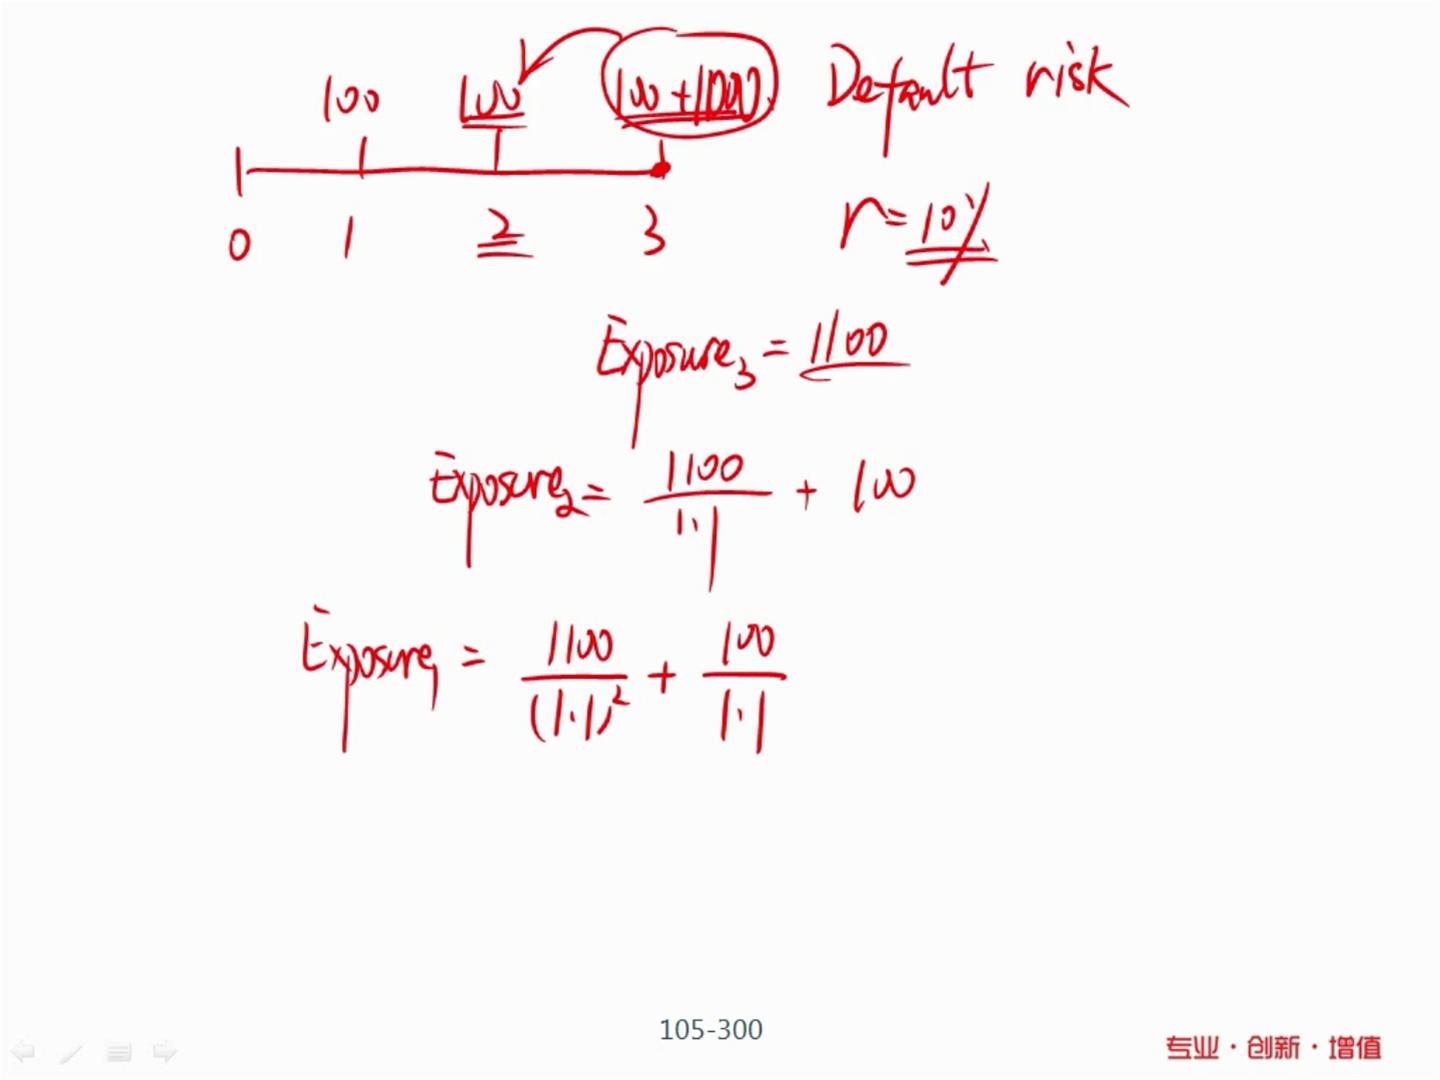 100 100 100+1000 Default risk
0 1 2 3 r=10%
Exposure3 = 1100
Exposure2 = 1100/1.1 + 100
Exposure1 = 1100/(1.1)² + 100/1.1
105-300
专业·创新·增值